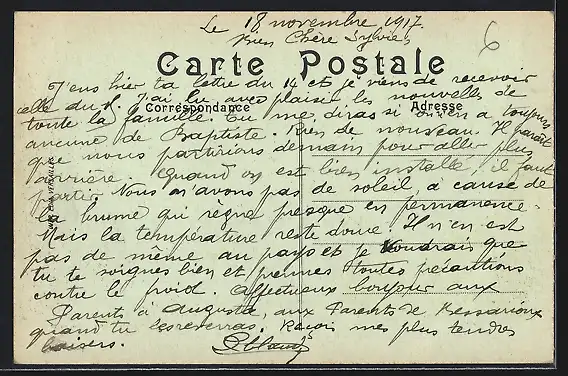 Le 18 novembre 1917.
Bien Chère Sylvie
6
Carte Postale
J'eus hier ta lettre du 14 et je viens de recevoir
celle du J'ai lu avec plaisir les nouvelles de
Correspondance
Adresse
toute la famille. Tu me diras si on en a toujours
aucune de Baptiste. Rien de nouveau. Il paraît
que nous partirions demain pour aller plus
arrière. Quand on est bien installé, il faut
partir. Nous n'avons pas de soleil, à cause de
la brume qui règne presque en permanence.
Mais la température reste douce. Il n'en est
pas de même au pays et je voudrais que
tu te soignes bien et prennes toutes précautions
contre le froid. Affectueux bonjour aux
Parents à Augusta, aux Parents de
quand tu écriras. Reçois mes plus tendres
baisers.